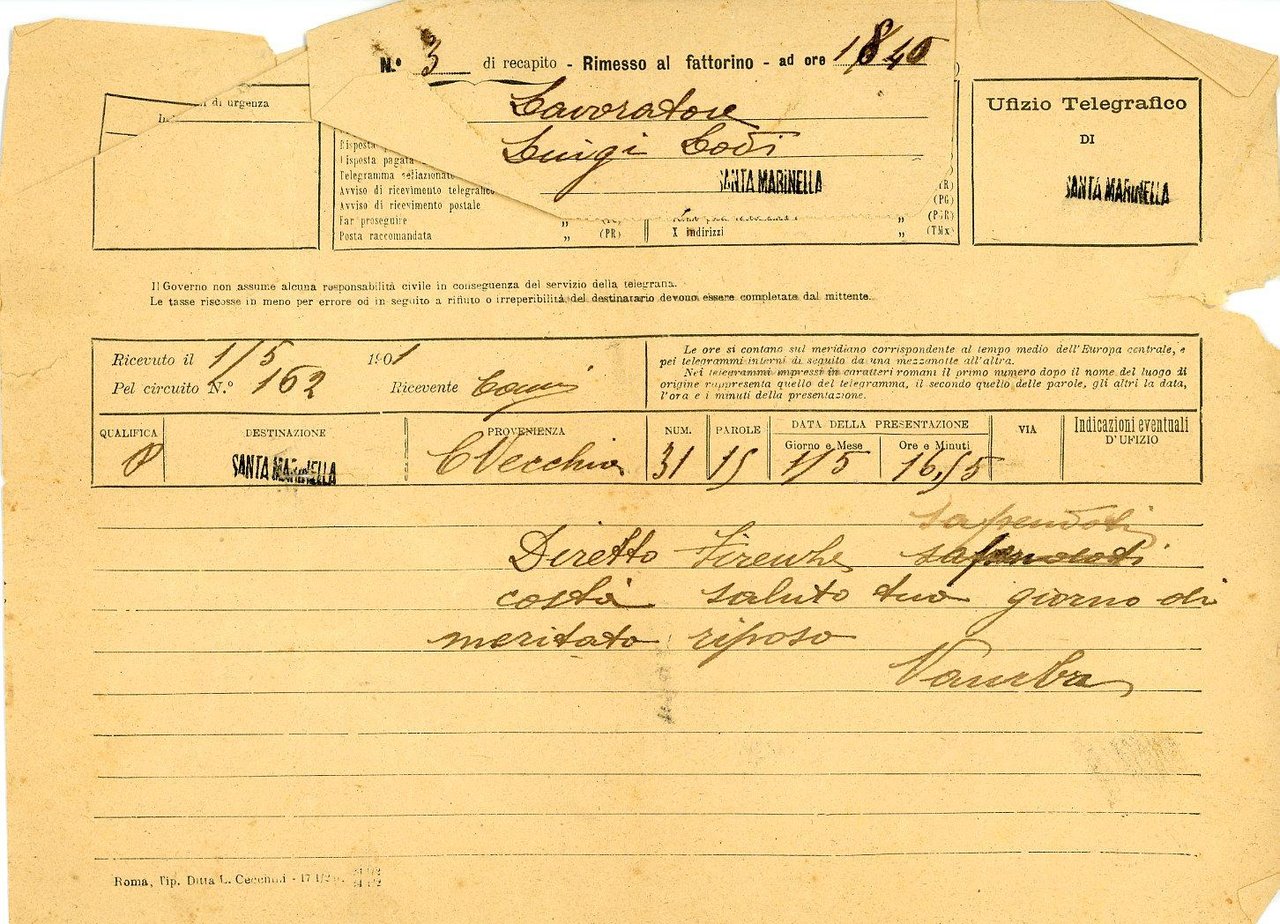 N.º 3 di recapito - Rimesso al fattorino - ad ore 18/40
Lavoratore
Luigi Lodi
SANTA MARINELLA
di urgenza
Risposta
Risposta pagata
Telegramma
Avviso di ricevimento telegrafico
Avviso di ricevimento postale
Far proseguire „
Posta raccomandata „ (PR)
(TR)
(PG)
„ (PGR)
X indirizzi „ (TMx)
Ufizio Telegrafico
DI
SANTA MARINELLA
Il Governo non assume alcuna responsabilità civile in conseguenza del servizio della telegrafia.
Le tasse riscosse in meno per errore od in seguito a rifiuto o irreperibilità del destinatario devono essere completate dal mittente.
Ricevuto il 1/5 1901
Pel circuito N.º 162 Ricevente
Le ore si contano sul meridiano corrispondente al tempo medio dell'Europa centrale, e
pei telegrammi interni di seguito da una mezzanotte all'altra.
Nei telegrammi impressi in caratteri romani il primo numero dopo il nome del luogo di
origine rappresenta quello del telegramma, il secondo quello delle parole, gli altri la data,
l'ora e i minuti della presentazione.
QUALIFICA
DESTINAZIONE
SANTA MARINELLA
PROVENIENZA
CVecchia
NUM.
31
PAROLE
15
DATA DELLA PRESENTAZIONE
Giorno e Mese
1/5
Ore e Minuti
16,55
VIA
Indicazioni eventuali
D'UFIZIO
sapendoti
Diretto Firenze
costà saluto tuo giorno di
meritato riposo
Vamba
Roma, Tip. Ditta L. Cecchini